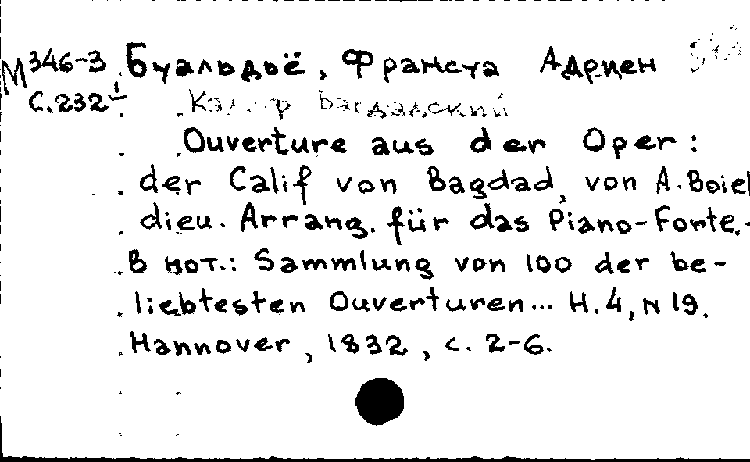 М 346-3 Буальдьё, Франсуа Адриен
с. 232 Калиф Багдадский
Ouverture aus der Oper:
der Calif von Bagdad, von A. Boiel
dieu. Arrang. für das Piano-Forte.-
В нот.: Sammlung von 100 der be-
liebtesten Ouverturen... H.4, N 19.
Hannover, 1832, с. 2-6.